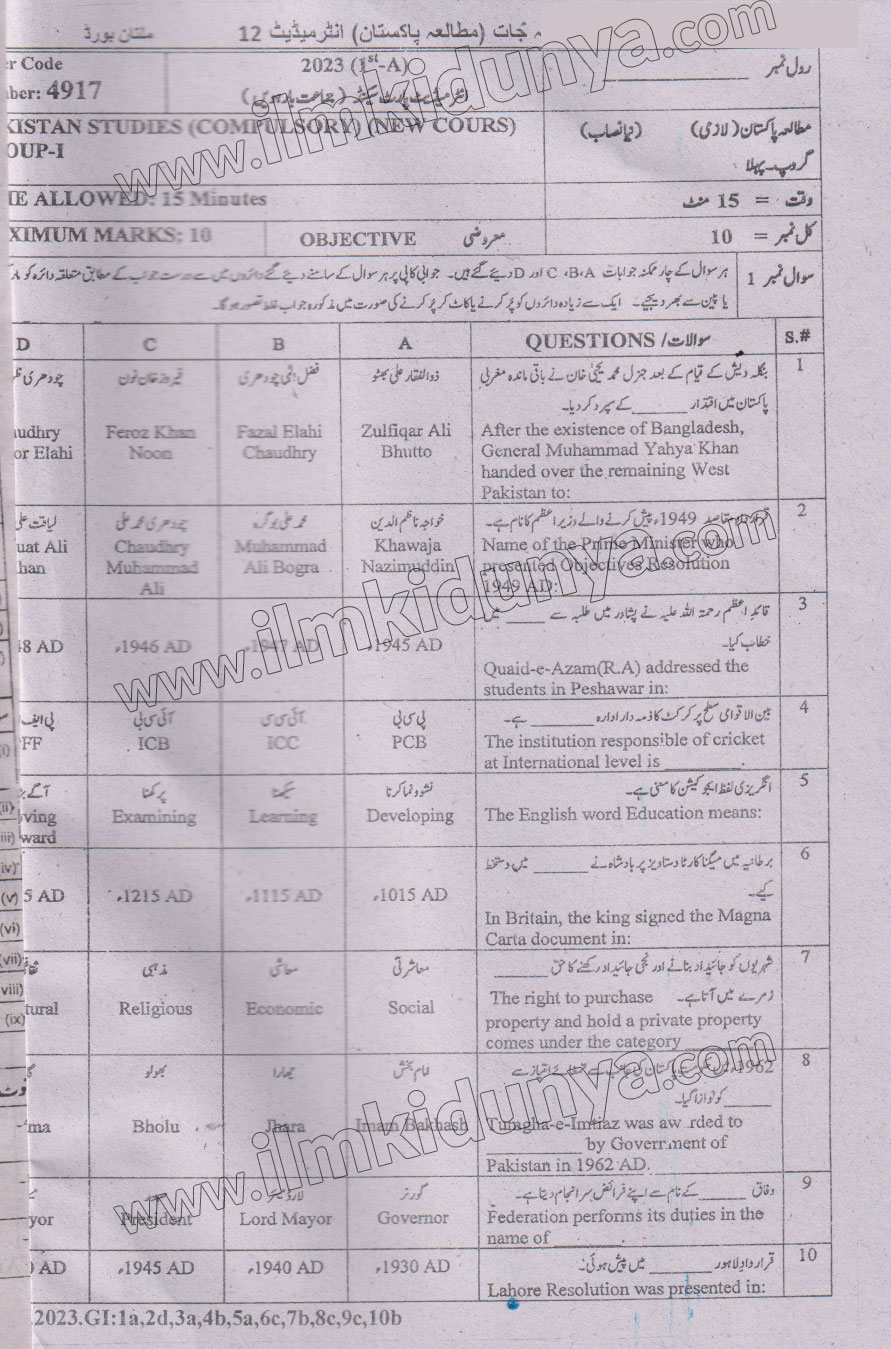 جات (مطالعہ پاکستان) انٹرمیڈیٹ 12 ملتان بورڈ
r Code 2023 (1st-A) رول نمبر
ber: 4917 انٹرمیڈیٹ پارٹ سیکنڈ (جماعت بارہویں)
KISTAN STUDIES (COMPULSORY) (NEW COURS) مطالعہ پاکستان (لازمی) (نیا نصاب)
OUP-I گروپ۔ پہلا
IE ALLOWED: 15 Minutes وقت = 15 منٹ
XIMUM MARKS: 10 OBJECTIVE معروضی کل نمبر = 10
سوال نمبر 1 ہر سوال کے چار ممکنہ جوابات B، A، C اور D دیئے گئے ہیں۔ جوابی کاپی پر ہر سوال کے سامنے دیئے گئے دائروں میں سے درست جواب کے مطابق متعلقہ دائرہ کو
یا پین سے بھر دیجیے۔ ایک سے زیادہ دائروں کو پُر کرنے یا کاٹ کر پُر کرنے کی صورت میں مذکورہ جواب غلط تصور ہوگا۔
D C B A QUESTIONS / سوالات S.#
چودھری فیروز خان نون فضل الٰہی چودھری ذوالفقار علی بھٹو بنگلہ دیش کے قیام کے بعد جنرل محمد یحییٰ خان نے باقی ماندہ مغربی 1
پاکستان میں اقتدار ______ کے سپرد کر دیا۔
udhry Feroz Khan Fazal Elahi Zulfiqar Ali After the existence of Bangladesh,
or Elahi Noon Chaudhry Bhutto General Muhammad Yahya Khan
handed over the remaining West
Pakistan to:
لیاقت علی چودھری محمد علی محمد علی بوگرہ خواجہ ناظم الدین قرارداد مقاصد 1949ء پیش کرنے والے وزیراعظم کا نام ہے۔ 2
uat Ali Chaudhry Muhammad Khawaja Name of the Prime Minister who
han Muhammad Ali Bogra Nazimuddin presented Objectives Resolution
Ali 1949 AD:
قائداعظم رحمتہ اللہ علیہ نے پشاور میں طلبہ سے ____ میں 3
خطاب کیا۔
48 AD 1946 AD، 1947 AD، 1945 AD، Quaid-e-Azam(R.A) addressed the
students in Peshawar in:
پی ایف آئی سی بی آئی سی سی پی سی بی بین الاقوامی سطح پر کرکٹ کا ذمہ دار ادارہ ______ ہے۔ 4
FF ICB ICC PCB The institution responsible of cricket
at International level is ________.
آگے پرکھنا سیکھنا نشوونما کرنا انگریزی لفظ ایجوکیشن کا معنی ہے۔ 5
ving Examining Learning Developing The English word Education means:
ward
برطانیہ میں میگنا کارٹا دستاویز پر بادشاہ نے ______ میں دستخط 6
کیے۔
5 AD 1215 AD، 1115 AD، 1015 AD، In Britain, the king signed the Magna
Carta document in:
مذہبی معاشی معاشرتی شہریوں کو جائیداد بنانے اور نجی جائیداد رکھنے کا حق ______ 7
زمرے میں آتا ہے۔ The right to purchase
tural Religious Economic Social property and hold a private property
comes under the category
بھولو جھارا امام بخش 1962ء 8
______ کو نوازا گیا۔
ma Bholu Jhara Imam Bakhash Tumgha-e-Imtiaz was aw rded to
__________ by Government of
Pakistan in 1962 AD.
گورنر وفاق ______ کے نام سے اپنے فرائض سرانجام دیتا ہے۔ 9
yor President Lord Mayor Governor Federation performs its duties in the
name of _______.
قرارداد لاہور ______ میں پیش ہوئی: 10
AD 1945 AD، 1940 AD، 1930 AD، Lahore Resolution was presented in:
.2023.GI:1a,2d,3a,4b,5a,6c,7b,8c,9c,10b
ii)
iii)
iv)
(v)
(vi)
(vii)
viii)
(ix)
www.ilmkidunya.com
www.ilmkidunya.com
www.ilmkidunya.com